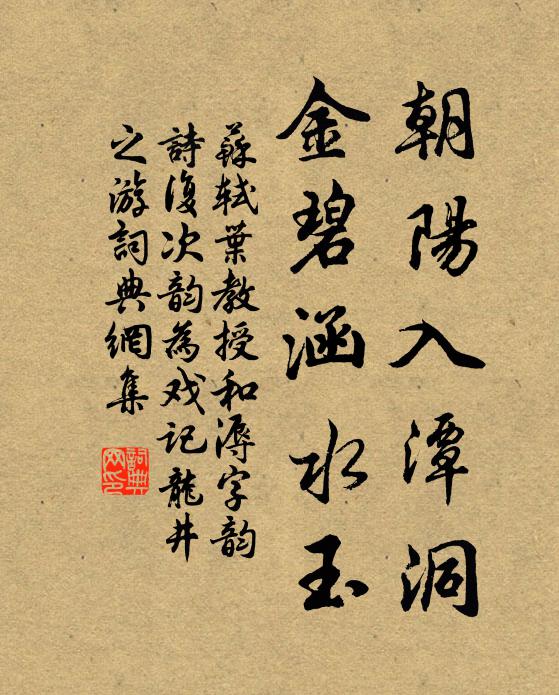 朝陽入潭洞
金碧涵水玉
蘇軾葉教授和溽字韵
詩復次韵為戏記龍井
之游詞典網集
詞典網印